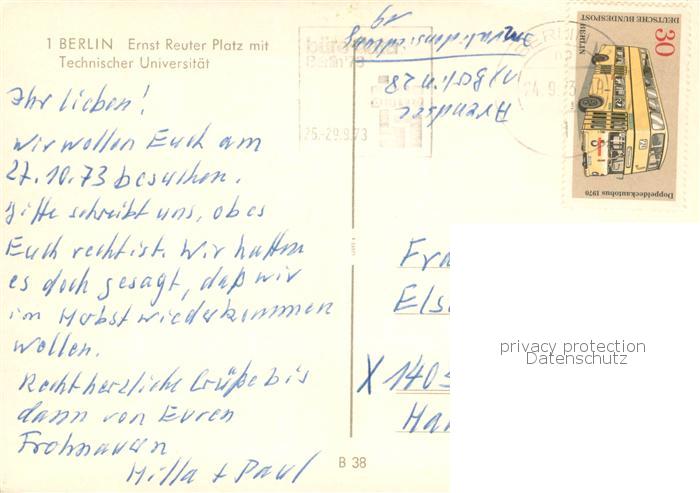 1 BERLIN Ernst Reuter Platz mit
Technischer Universität
Ihr lieben!
wir wollen Euch am
27.10.73 besuchen.
Bitte schreibt uns, ob es
Euch recht ist. Wir hatten
es doch gesagt, daß wir
im Herbst wiederkommen
wollen.
Recht herzliche Grüße bis
dann von Euren
Frohnauern
Hilla + Paul
Invalidensiedlung
19
1) Berlin 28
Berlin '73
25.-29.9.73
BERLIN
24.9.73
DEUTSCHE BUNDESPOST
BERLIN
30
Doppeldeckautobus 1970
Fra
Els
X 140
Ha
privacy protection
Datenschutz
B 38